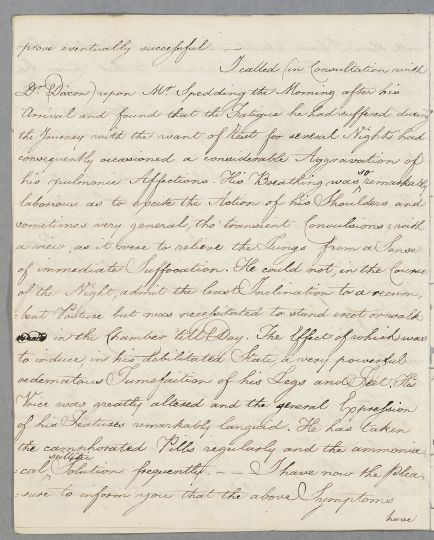 prove eventually successful. —
I called (in Consultation with
Dr. Dixon) upon Mr. Spedding the Morning after his
Arrival and found that the Fatigue he had suffered during
the Journey with the want of Rest for several Nights had
consequently occasioned a considerable Aggravation of
his pulmonic Affections. His Breathing was so remarkably
laborious as to excite the Action of his Shoulders and
sometimes very general, tho' transient Convulsions; with
a view, as it were to relieve the Lungs from a Sense
of immediate Suffocation. He could not, in the Course
of the Night, admit the least Inclination to a recum-
bent Posture but was necessitated to stand erect or walk
in the Chamber 'till Day. The Effect of which was
to induce, in his debilitated State, a very powerful
oedematous Tumefaction of his Legs and Feet. His
Voice was greatly altered and the general Expression
of his Features remarkably languid. He has taken
the camphorated Pills regularly and the ammonia
=cal Solution frequently. — — I have now the Plea-
=sure to inform you that the above Symptoms
have